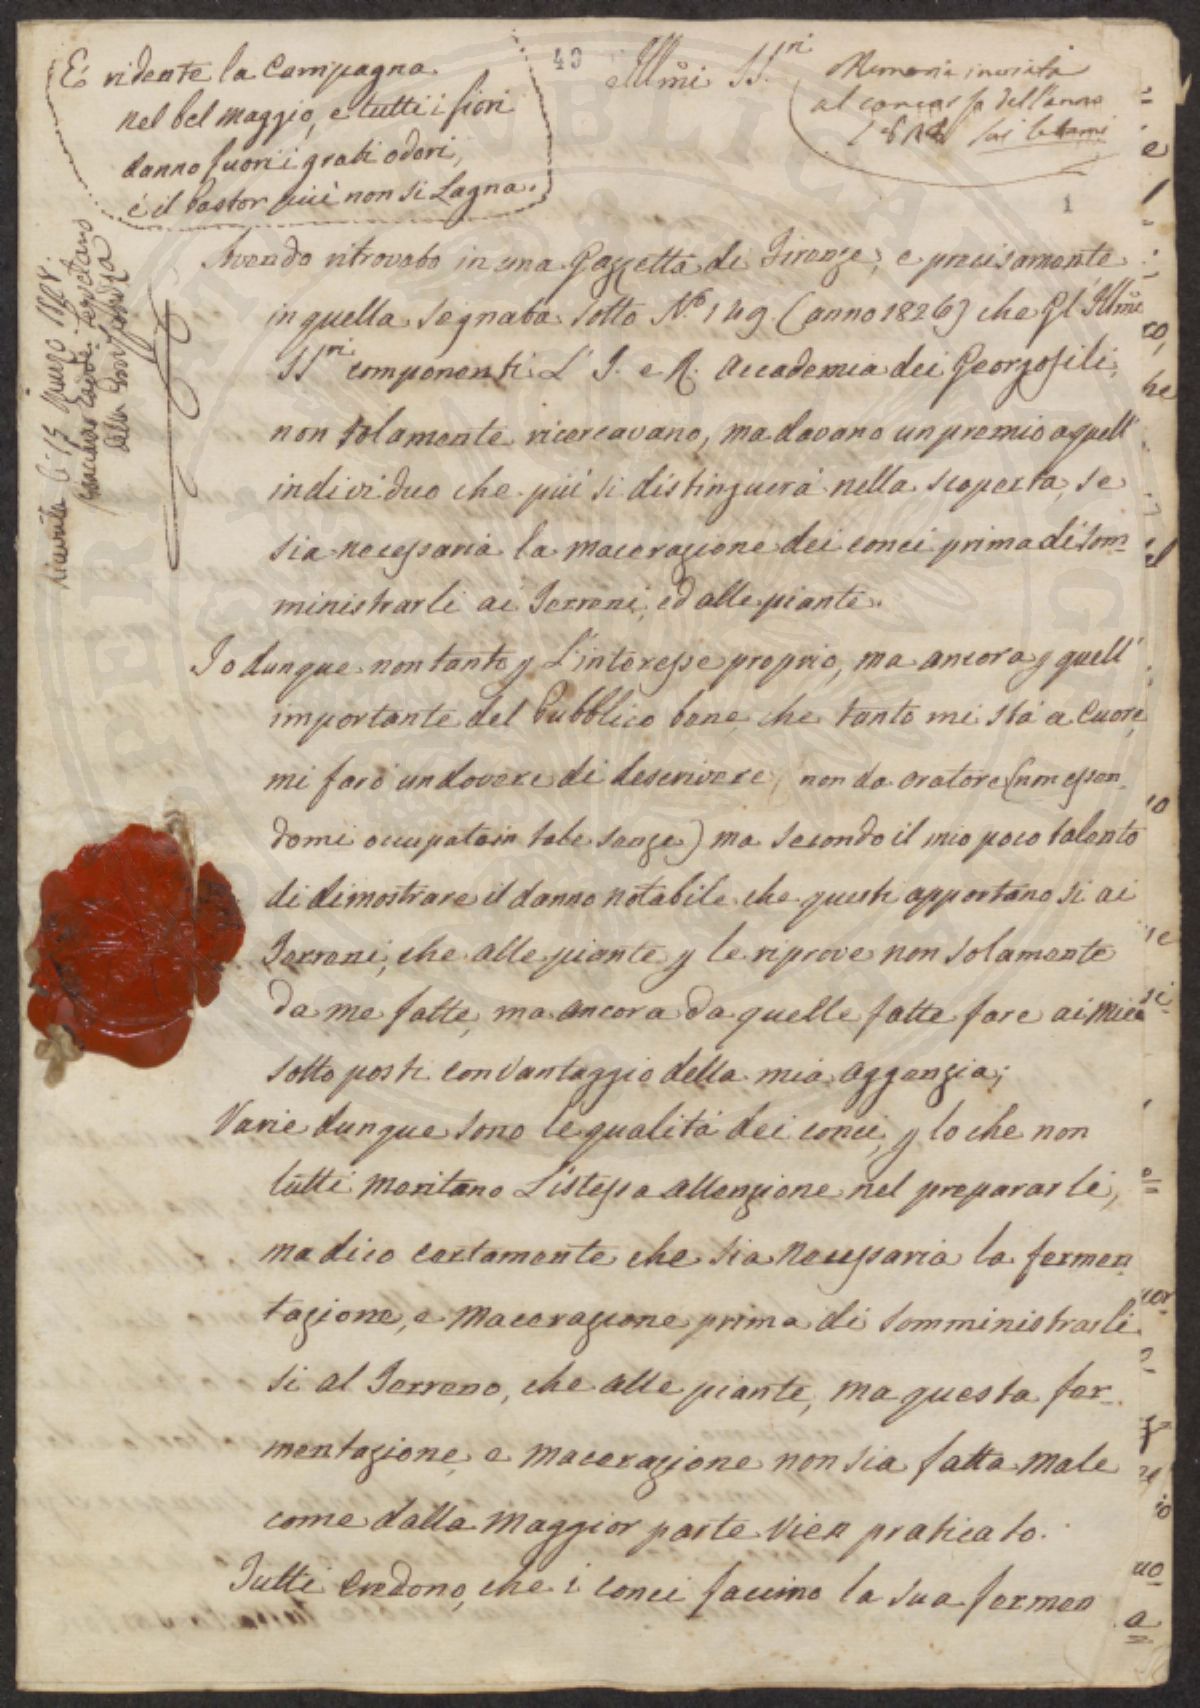 E ridente la Campagna
nel bel Maggio, e tutti i fiori
danno fuori i grati odori,
e il Pastor più non si Lagna.
49
Illmi SS.ri
Memoria inviata
al concorso dell'anno
1
Ricevuta li 15 Giugno 1828.
Segretario
delle Corrispondenza
Avendo ritrovato in una Gazzetta di Firenze, e precisamente
in quella segnata sotto N.º 149. (anno 1826) che Gl'Illmi
SS.ri componenti L' I. e R. Accademia dei Georgofili,
non solamente ricercavano, ma davano un premio a quell'
individuo che più si distinguerà nella scoperta, se
sia necessaria la macerazione dei conci prima di som-
ministrarli ai Terreni, ed alle piante.
Io dunque non tanto p L'interesse proprio, ma ancora p quell'
importante del Pubblico bene, che tanto mi stà a Cuore,
mi farò un dovere di descrivere, non da oratore (non essen-
domi occupato in tale senze) ma secondo il mio poco talento
di dimostrare il danno notabile che questi apportano si ai
Terreni, che alle piante p le riprove non solamente
da me fatte, ma ancora da quelle fatte fare ai Miei
sotto posti con Vantaggio della mia aggenzia;
Varie dunque sono le qualità dei conci, p lo che non
tutti meritano L'istessa attenzione nel prepararli,
ma dico certamente che sia Necessaria la fermen-
tazione, e Macerazione prima di somministrarli
si al Terreno, che alle piante, ma questa fer-
mentazione, e macerazione non sia fatta male
come dalla Maggior parte Vien praticato.
Tutti Credono, che i conci faccino la sua fermen